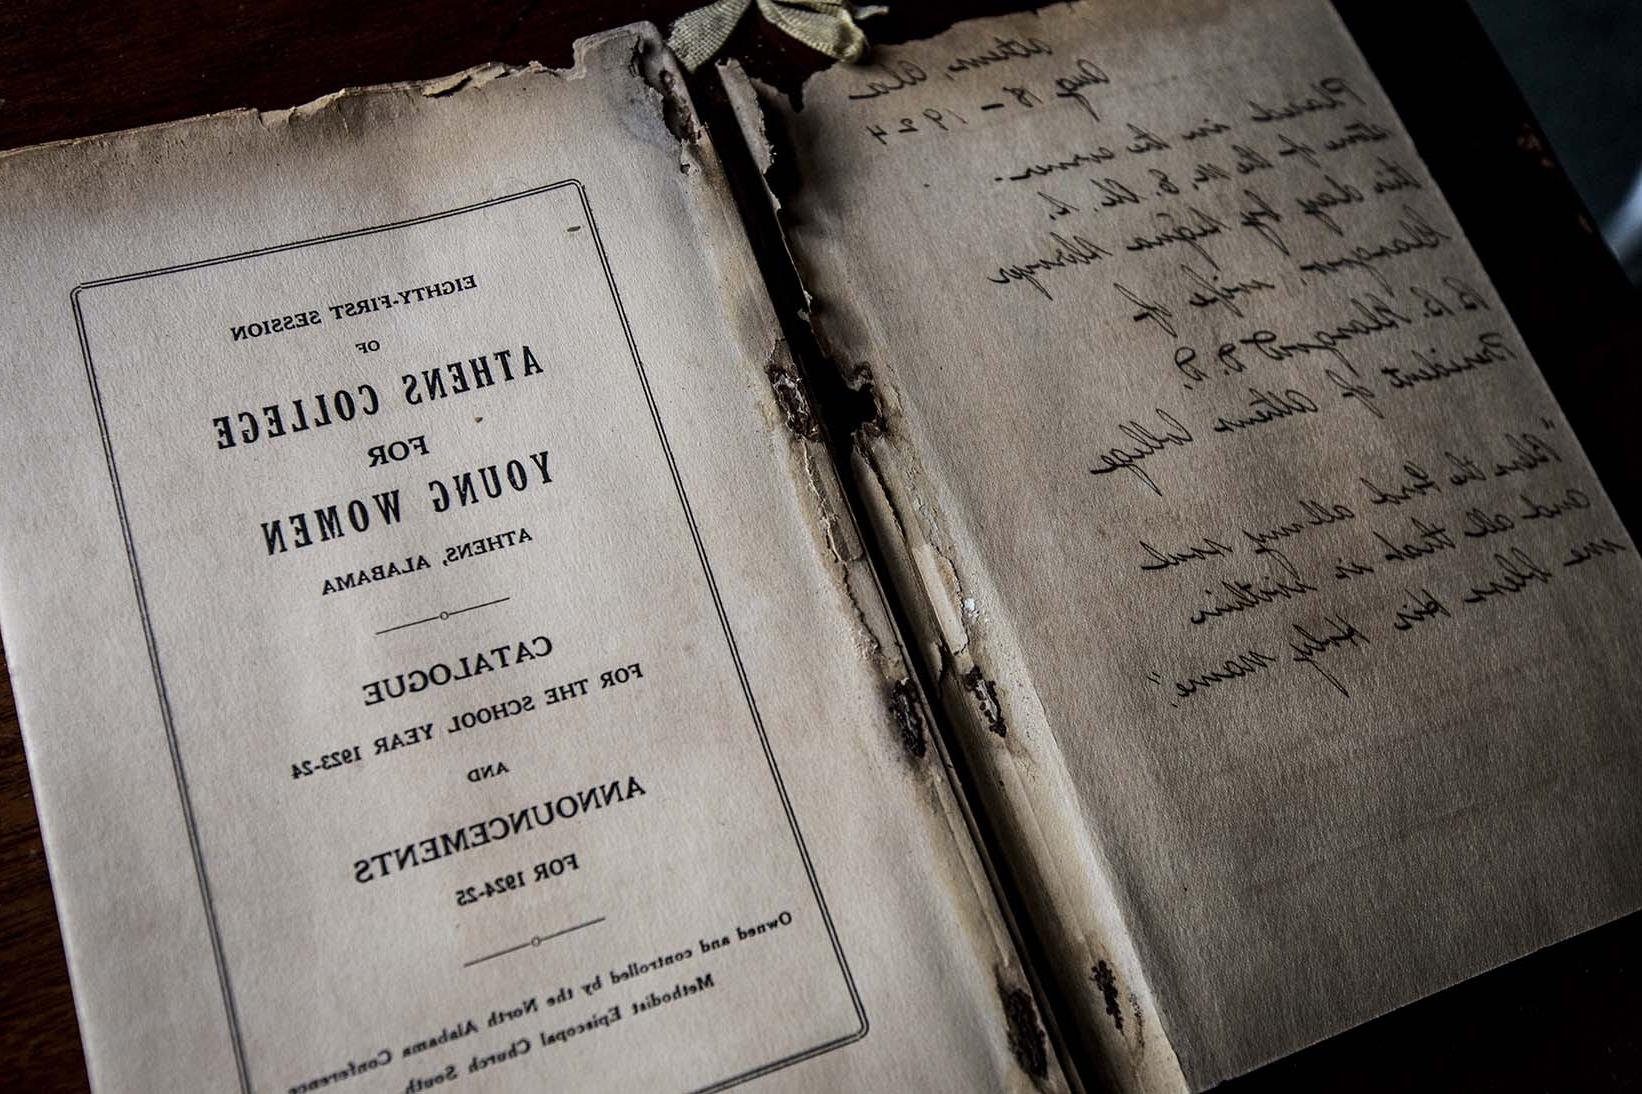 Athens, Ala
Aug 18 - 1924
Placed in the corner-
stone of the M. E. Ch. S.
this day by
wife of
B. B. Glasgow D.D.
President of Athens College
"Bless the Lord all my soul
and all that is within
me bless His Holy name".
EIGHTY-FIRST SESSION
OF
ATHENS COLLEGE
FOR
YOUNG WOMEN
ATHENS, ALABAMA
CATALOGUE
FOR THE SCHOOL YEAR 1923-24
AND
ANNOUNCEMENTS
FOR 1924-25
Owned and controlled by the North Alabama Conference
Methodist Episcopal Church South